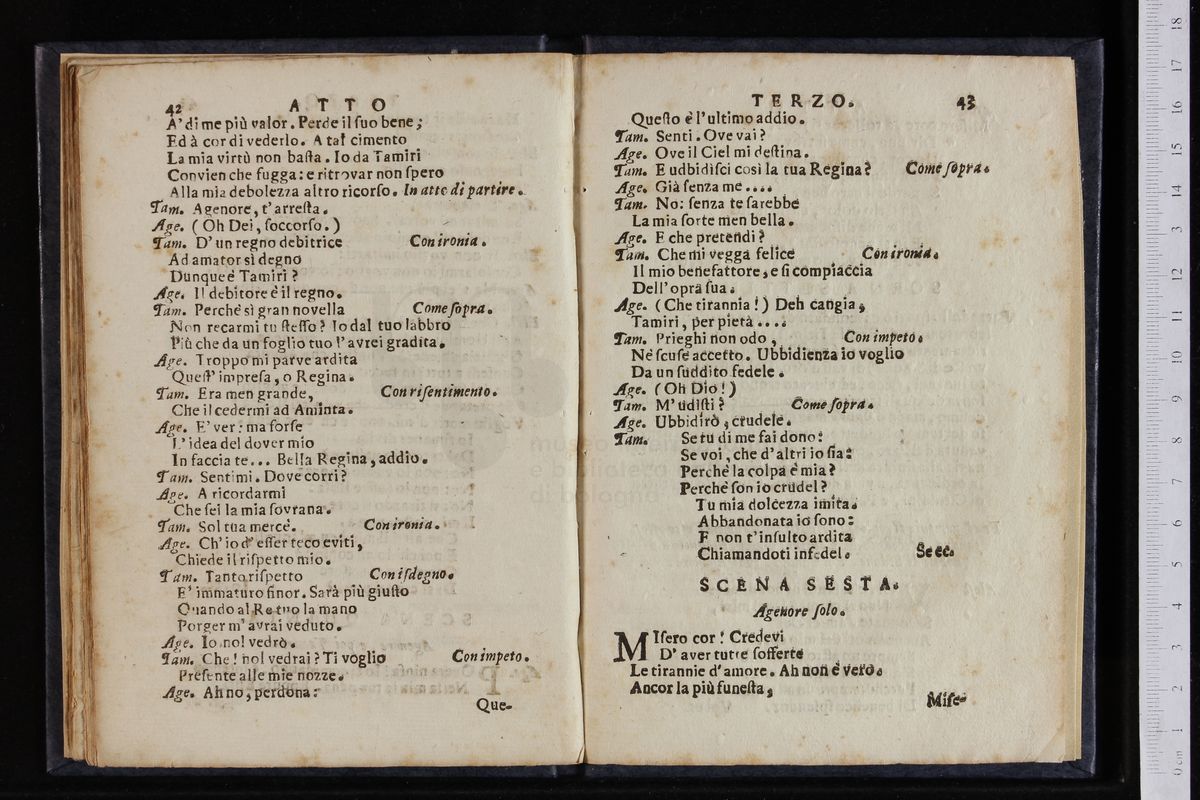 42 ATTO
A' di me più valor. Perde il ſuo bene;
Ed à cor di vederlo. A tal cimento
La mia virtù non baſta. Io da Tamiri
Convien che fugga: e ritrovar non ſpero
Alla mia debolezza altro ricorſo. In atto di partire.
Tam. Agenore, t'arreſta.
Age. (Oh Dei, ſoccorſo.)
Tam. D' un regno debitrice Con ironia.
Ad amator sì degno
Dunque è Tamiri?
Age. Il debitore è il regno.
Tam. Perchè sì gran novella Come ſopra.
Non recarmi tu ſteſſo? Io dal tuo labbro
Più che da un foglio tuo l'avrei gradita.
Age. Troppo mi parve ardita
Queſt' impreſa, o Regina.
Tam. Era men grande, Con riſentimento.
Che il cedermi ad Aminta.
Age. E' ver: ma forſe
L' idea del dover mio
In faccia te... Bella Regina, addio.
Tam. Sentimi. Dove corri?
Age. A ricordarmi
Che ſei la mia ſovrana.
Tam. Sol tua mercè. Con ironia.
Age. Ch' io d' eſſer teco eviti,
Chiede il riſpetto mio.
Tam. Tanto riſpetto Con iſdegno.
E' immaturo finor. Sarà più giuſto
Quando al Re tuo la mano
Porger m' avrai veduto.
Age. Io nol vedrò.
Tam. Che! nol vedrai? Ti voglio Con impeto.
Preſente alle mie nozze.
Age. Ah no, perdona:
Que-
TERZO. 43
Queſto è l'ultimo addio.
Tam. Senti. Ove vai?
Age. Ove il Ciel mi deſtina.
Tam. E udbidiſci così la tua Regina? Come ſopra.
Age. Già ſenza me....
Tam. No: ſenza te ſarebbe
La mia ſorte men bella.
Age. E che pretendi?
Tam. Che mi vegga felice Con ironia.
Il mio benefattore, e ſi compiaccia
Dell'opra ſua.
Age. (Che tirannia!) Deh cangia,
Tamiri, per pietà....
Tam. Prieghi non odo, Con impeto.
Nè ſcuſe accetto. Ubbidienza io voglio
Da un ſuddito fedele.
Age. (Oh Dio!)
Tam. M'udiſti? Come ſopra.
Age. Ubbidirò, crudele.
Tam. Se tu di me fai dono:
Se voi, che d'altri io ſia:
Perchè la colpa è mia?
Perchè ſon io crudel?
Tu mia dolcezza imita.
Abbandonata io ſono:
E non t'inſulto ardita
Chiamandoti infedel. Se ec.
SCENA SESTA.
Agenore ſolo.
MIſero cor! Credevi
D' aver tutte ſofferte
Le tirannie d'amore. Ah non è vero.
Ancor la più funeſta,
Miſe-
museo
e biblioteca
di bologna
0 cm 1 2 3 4 5 6 7 8 9 10 11 12 13 14 15 16 17 18